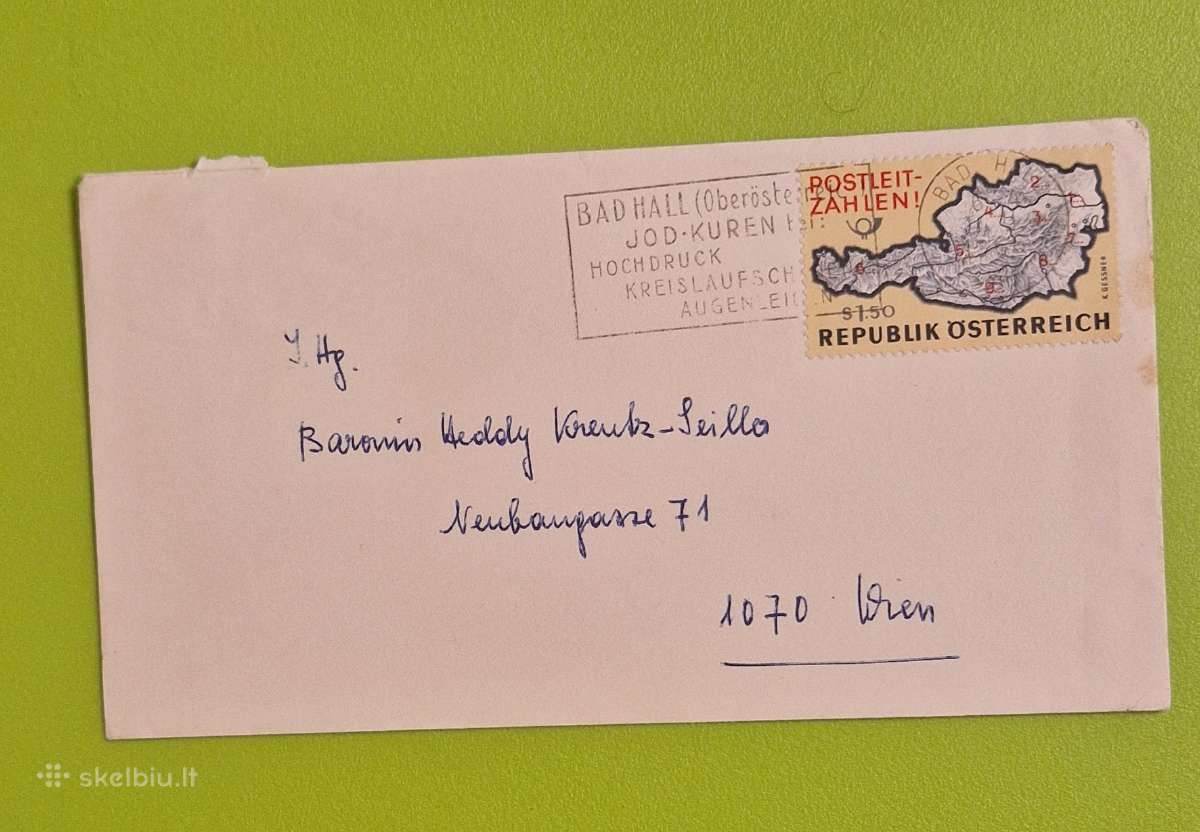 BAD HALL (Oberösterreich)
JOD-KUREN bei:
HOCHDRUCK
KREISLAUFSCH
AUGENLEIDEN
POSTLEIT-
ZAHLEN!
BAD H
2
1
4
3
7
5
6
8
9
K GESSNER
S 1.50
REPUBLIK ÖSTERREICH
I. Hg.
Baronin Heddy Kreutz-Seiller
Neubaugasse 71
1070 Wien
skelbiu.lt